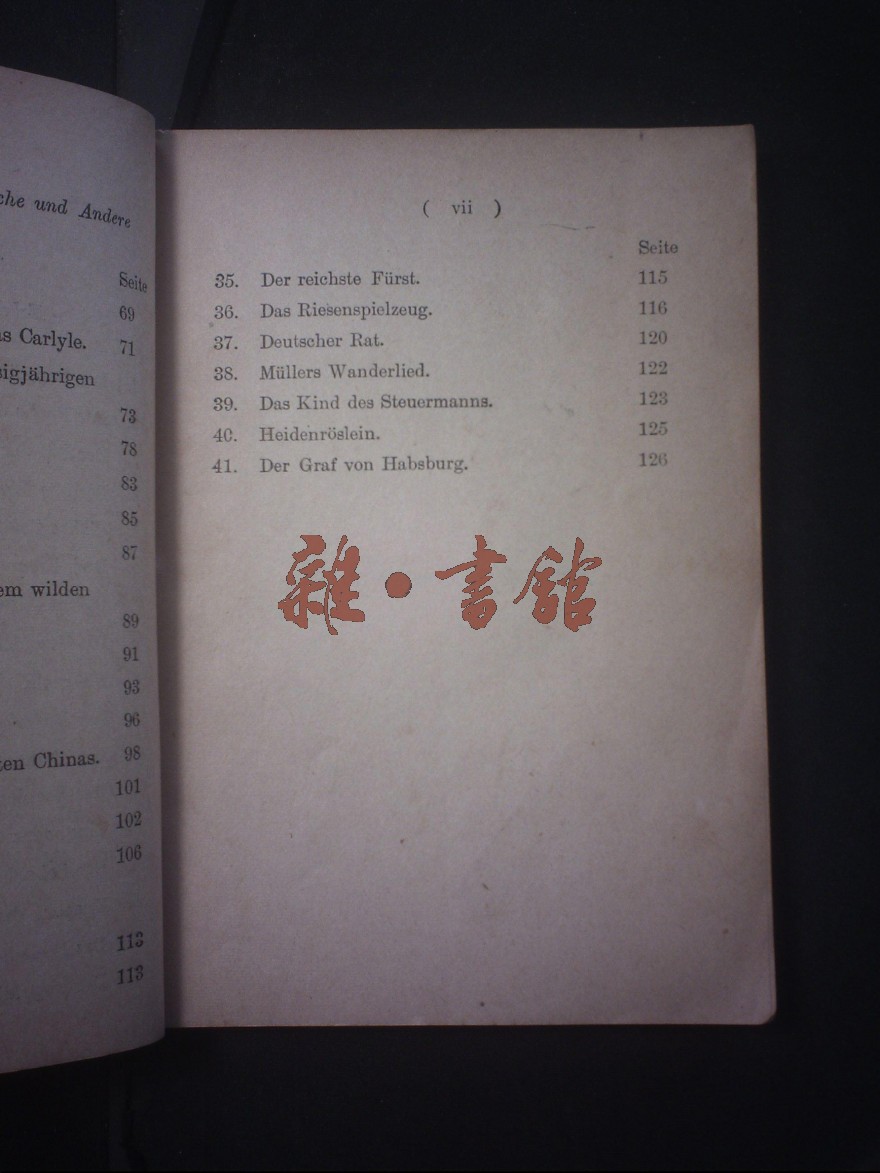 che und Andere
Seite
69
as Carlyle. 71
sigjährigen
73
78
83
85
87
em wilden
89
91
93
96
ten Chinas. 98
101
102
106
113
113
( vii )
Seite
35. Der reichste Fürst. 115
36. Das Riesenspielzeug. 116
37. Deutscher Rat. 120
38. Müllers Wanderlied. 122
39. Das Kind des Steuermanns. 123
40. Heidenröslein. 125
41. Der Graf von Habsburg. 126
雜·書館